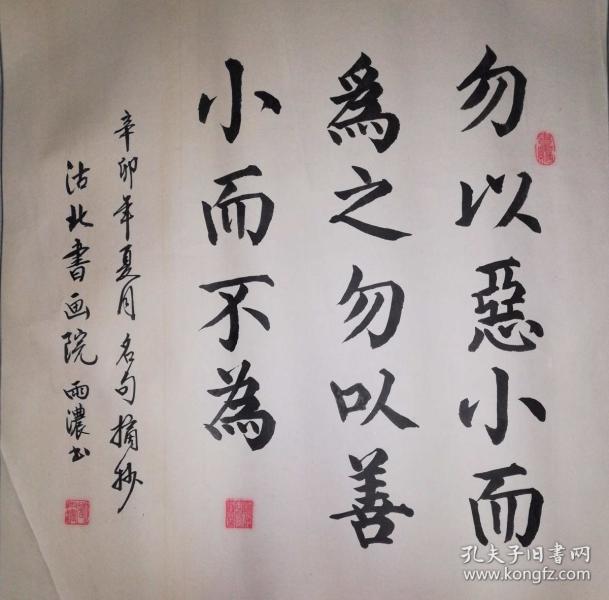 勿以惡小而
爲之勿以善
小而不為
辛卯年夏月名句摘抄
沽北書画院雨濃书
孔夫子旧書网
www.kongfz.com